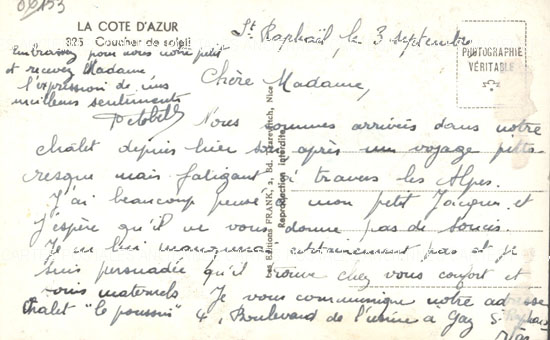 09153
LA COTE D'AZUR
325 Coucher de soleil
PHOTOGRAPHIE
VÉRITABLE
Les Editions FRANK, 2, Bd. Nice
Reproduction interdite
St Raphaël, le 3 septembre
Chère Madame,
Nous sommes arrivés dans notre
chalet depuis hier soir après un voyage pitto-
resque mais fatigant à travers les Alpes.
J'ai beaucoup pensé à mon petit Jacques et
j'espère qu'il ne vous donne pas de soucis.
Je lui manquerai certainement pas et je
suis persuadée qu'il trouve chez vous confort et
soins maternels Je vous communique notre adresse
Chalet "le poussin" 4, Boulevard de l'usine à Gaz St Raphaël
Var
Embrassez pour nous notre petit
et recevez Madame,
l'expression de nos
meilleurs sentiments